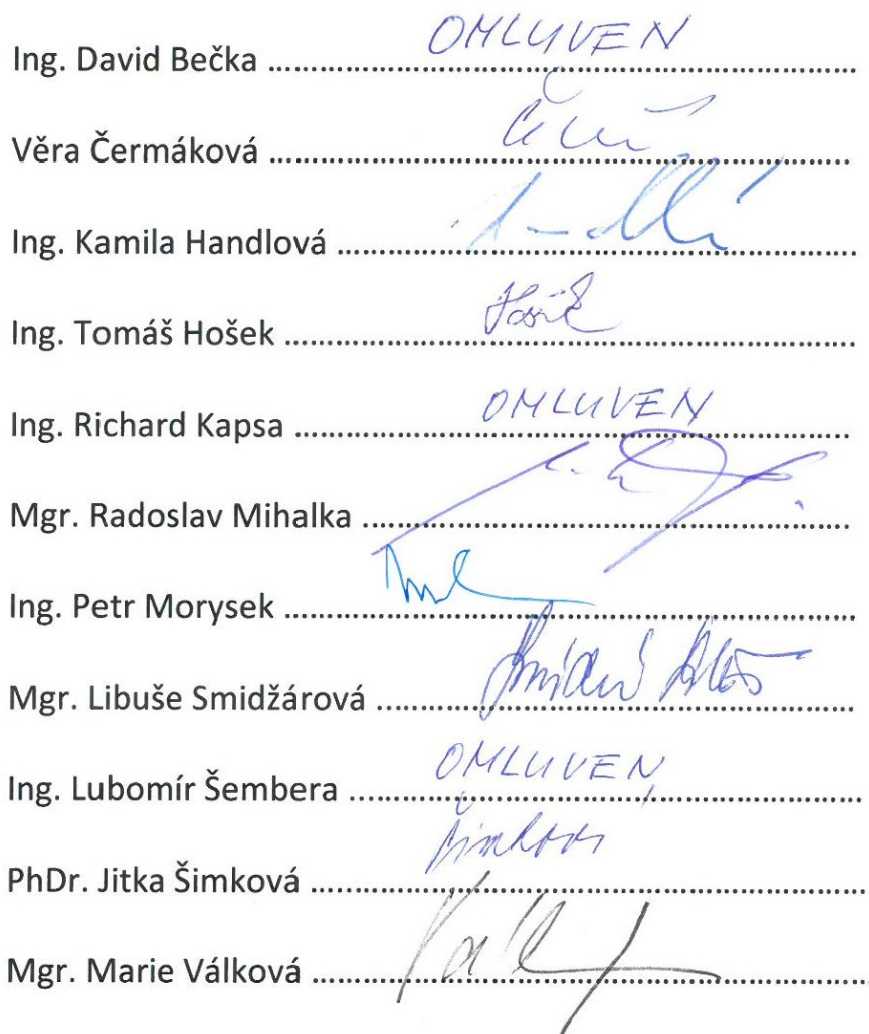 Ing. David Bečka .......... OMLUVEN
Věra Čermáková ..........
Ing. Kamila Handlová ..........
Ing. Tomáš Hošek ..........
Ing. Richard Kapsa .......... OMLUVEN
Mgr. Radoslav Mihalka ..........
Ing. Petr Morysek ..........
Mgr. Libuše Smidžárová ..........
Ing. Lubomír Šembera .......... OMLUVEN
PhDr. Jitka Šimková ..........
Mgr. Marie Válková ..........